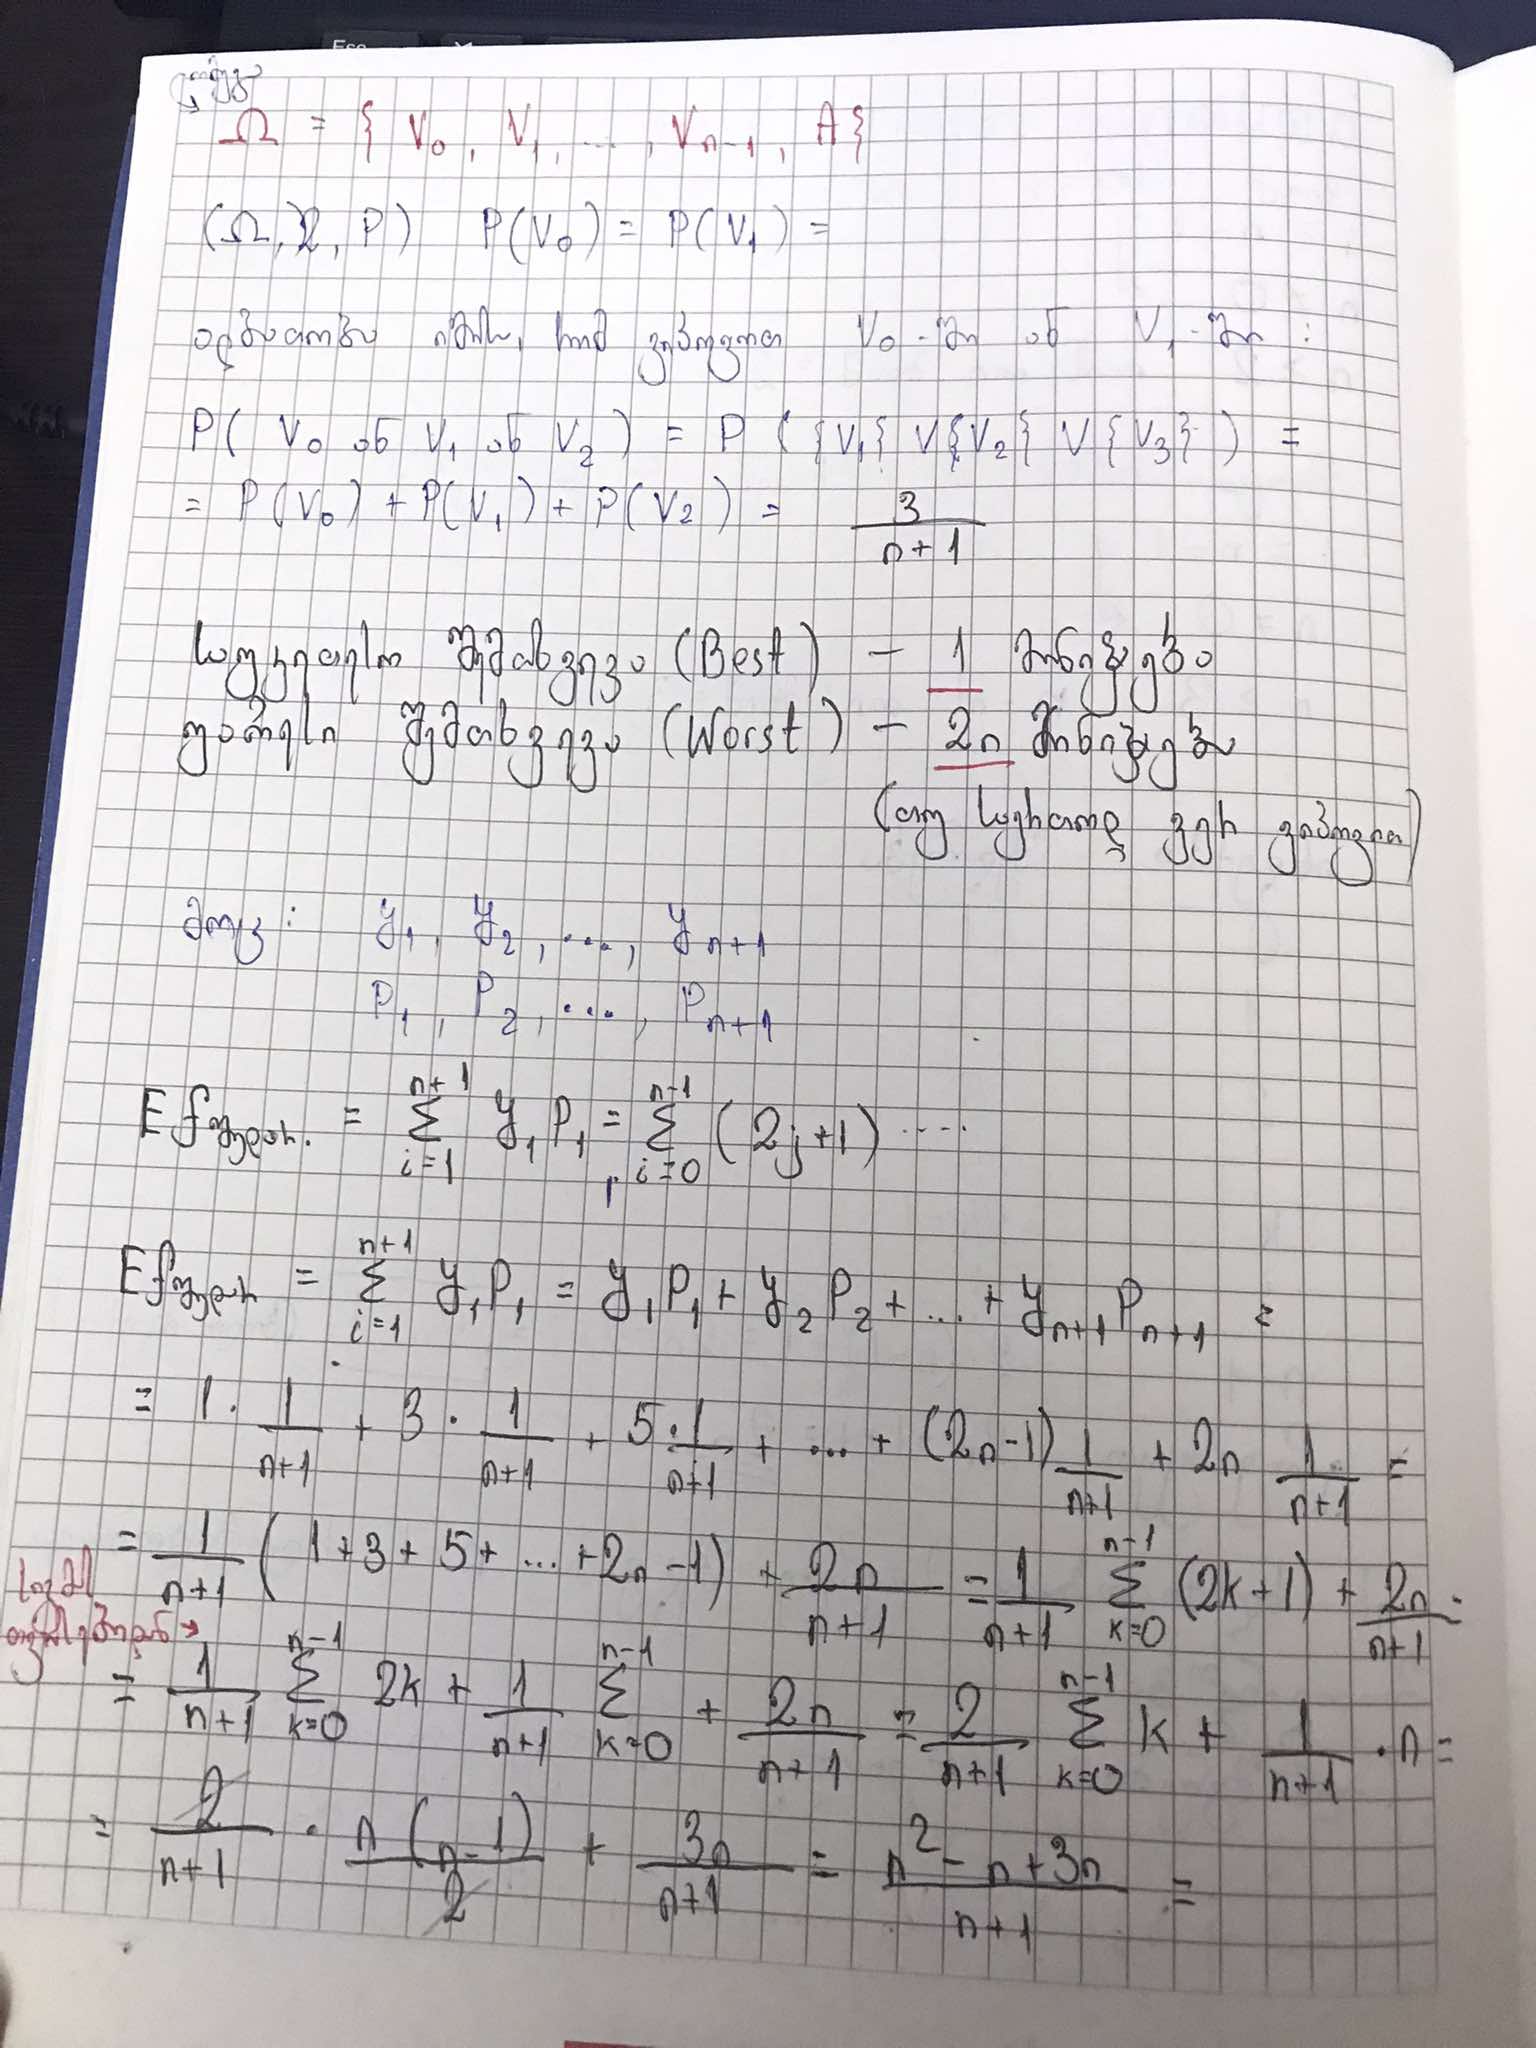 Ω = { V₀, V₁, ..., Vₙ₋₁, A}
(Ω, , P) P(V₀) = P(V₁) =
ალბათობა იმის, რომ ვიპოვით V₀-ში ან V₁-ში :
P( V₀ ან V₁ ან V₂ ) = P ( {V₁} V {V₂} V {V₃} ) =
= P(V₀) + P(V₁) + P(V₂) = 3/(n+1)
საუკეთესო შემთხვევა (Best) – 1 მონიჭება
უარესი შემთხვევა (Worst) – 2n მონიჭება
(თუ საერთოდ ვერ ვიპოვით)
y₁, y₂, ..., yₙ₊₁
P₁, P₂, ..., Pₙ₊₁
= Σ_{i=1}^{n+1} y₁P₁ = Σ_{i=0}^{n-1} (2j+1) ....
= Σ_{i=1}^{n+1} y₁P₁ = y₁P₁ + y₂P₂ + ... + yₙ₊₁Pₙ₊₁ =
= 1 · 1/(n+1) + 3 · 1/(n+1) + 5 · 1/(n+1) + ... + (2n-1) 1/(n+1) + 2n 1/(n+1) =
= 1/(n+1) (1+3+5+...+2n-1) + 2n/(n+1) = 1/(n+1) Σ_{k=0}^{n-1} (2k+1) + 2n/(n+1) =
= 1/(n+1) Σ_{k=0}^{n-1} 2k + 1/(n+1) Σ_{k=0}^{n-1} + 2n/(n+1) = 2/(n+1) Σ_{k=0}^{n-1} k + 1/(n+1) · n =
= 2/(n+1) · n(n-1)/2 + 3n/(n+1) = (n² - n + 3n)/(n+1) =